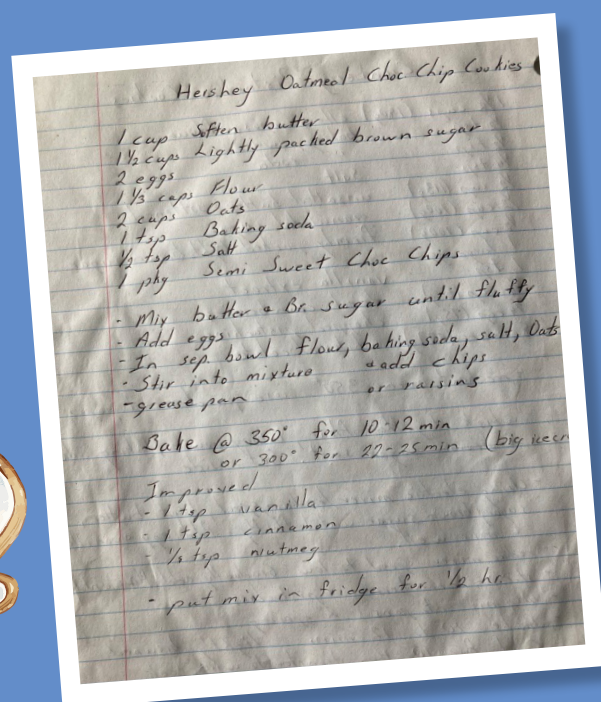 Hershey Oatmeal Choc Chip Cookies
1 cup Soften butter
1 1/2 cups Lightly packed brown sugar
2 eggs
1 1/3 cups Flour
2 cups Oats
1 tsp Baking soda
1/2 tsp Salt
1 pkg Semi Sweet Choc Chips
- Mix butter & Br. sugar until fluffy
- Add eggs
- In sep. bowl flour, baking soda, salt, Oats
- Stir into mixture & add chips
- grease pan or raisins
Bake @ 350° for 10-12 min
or 300° for 22-25 min (big
Improved
- 1 tsp vanilla
- 1 tsp cinnamon
- tsp nutmeg
- put mix in fridge for 1/2 hr.